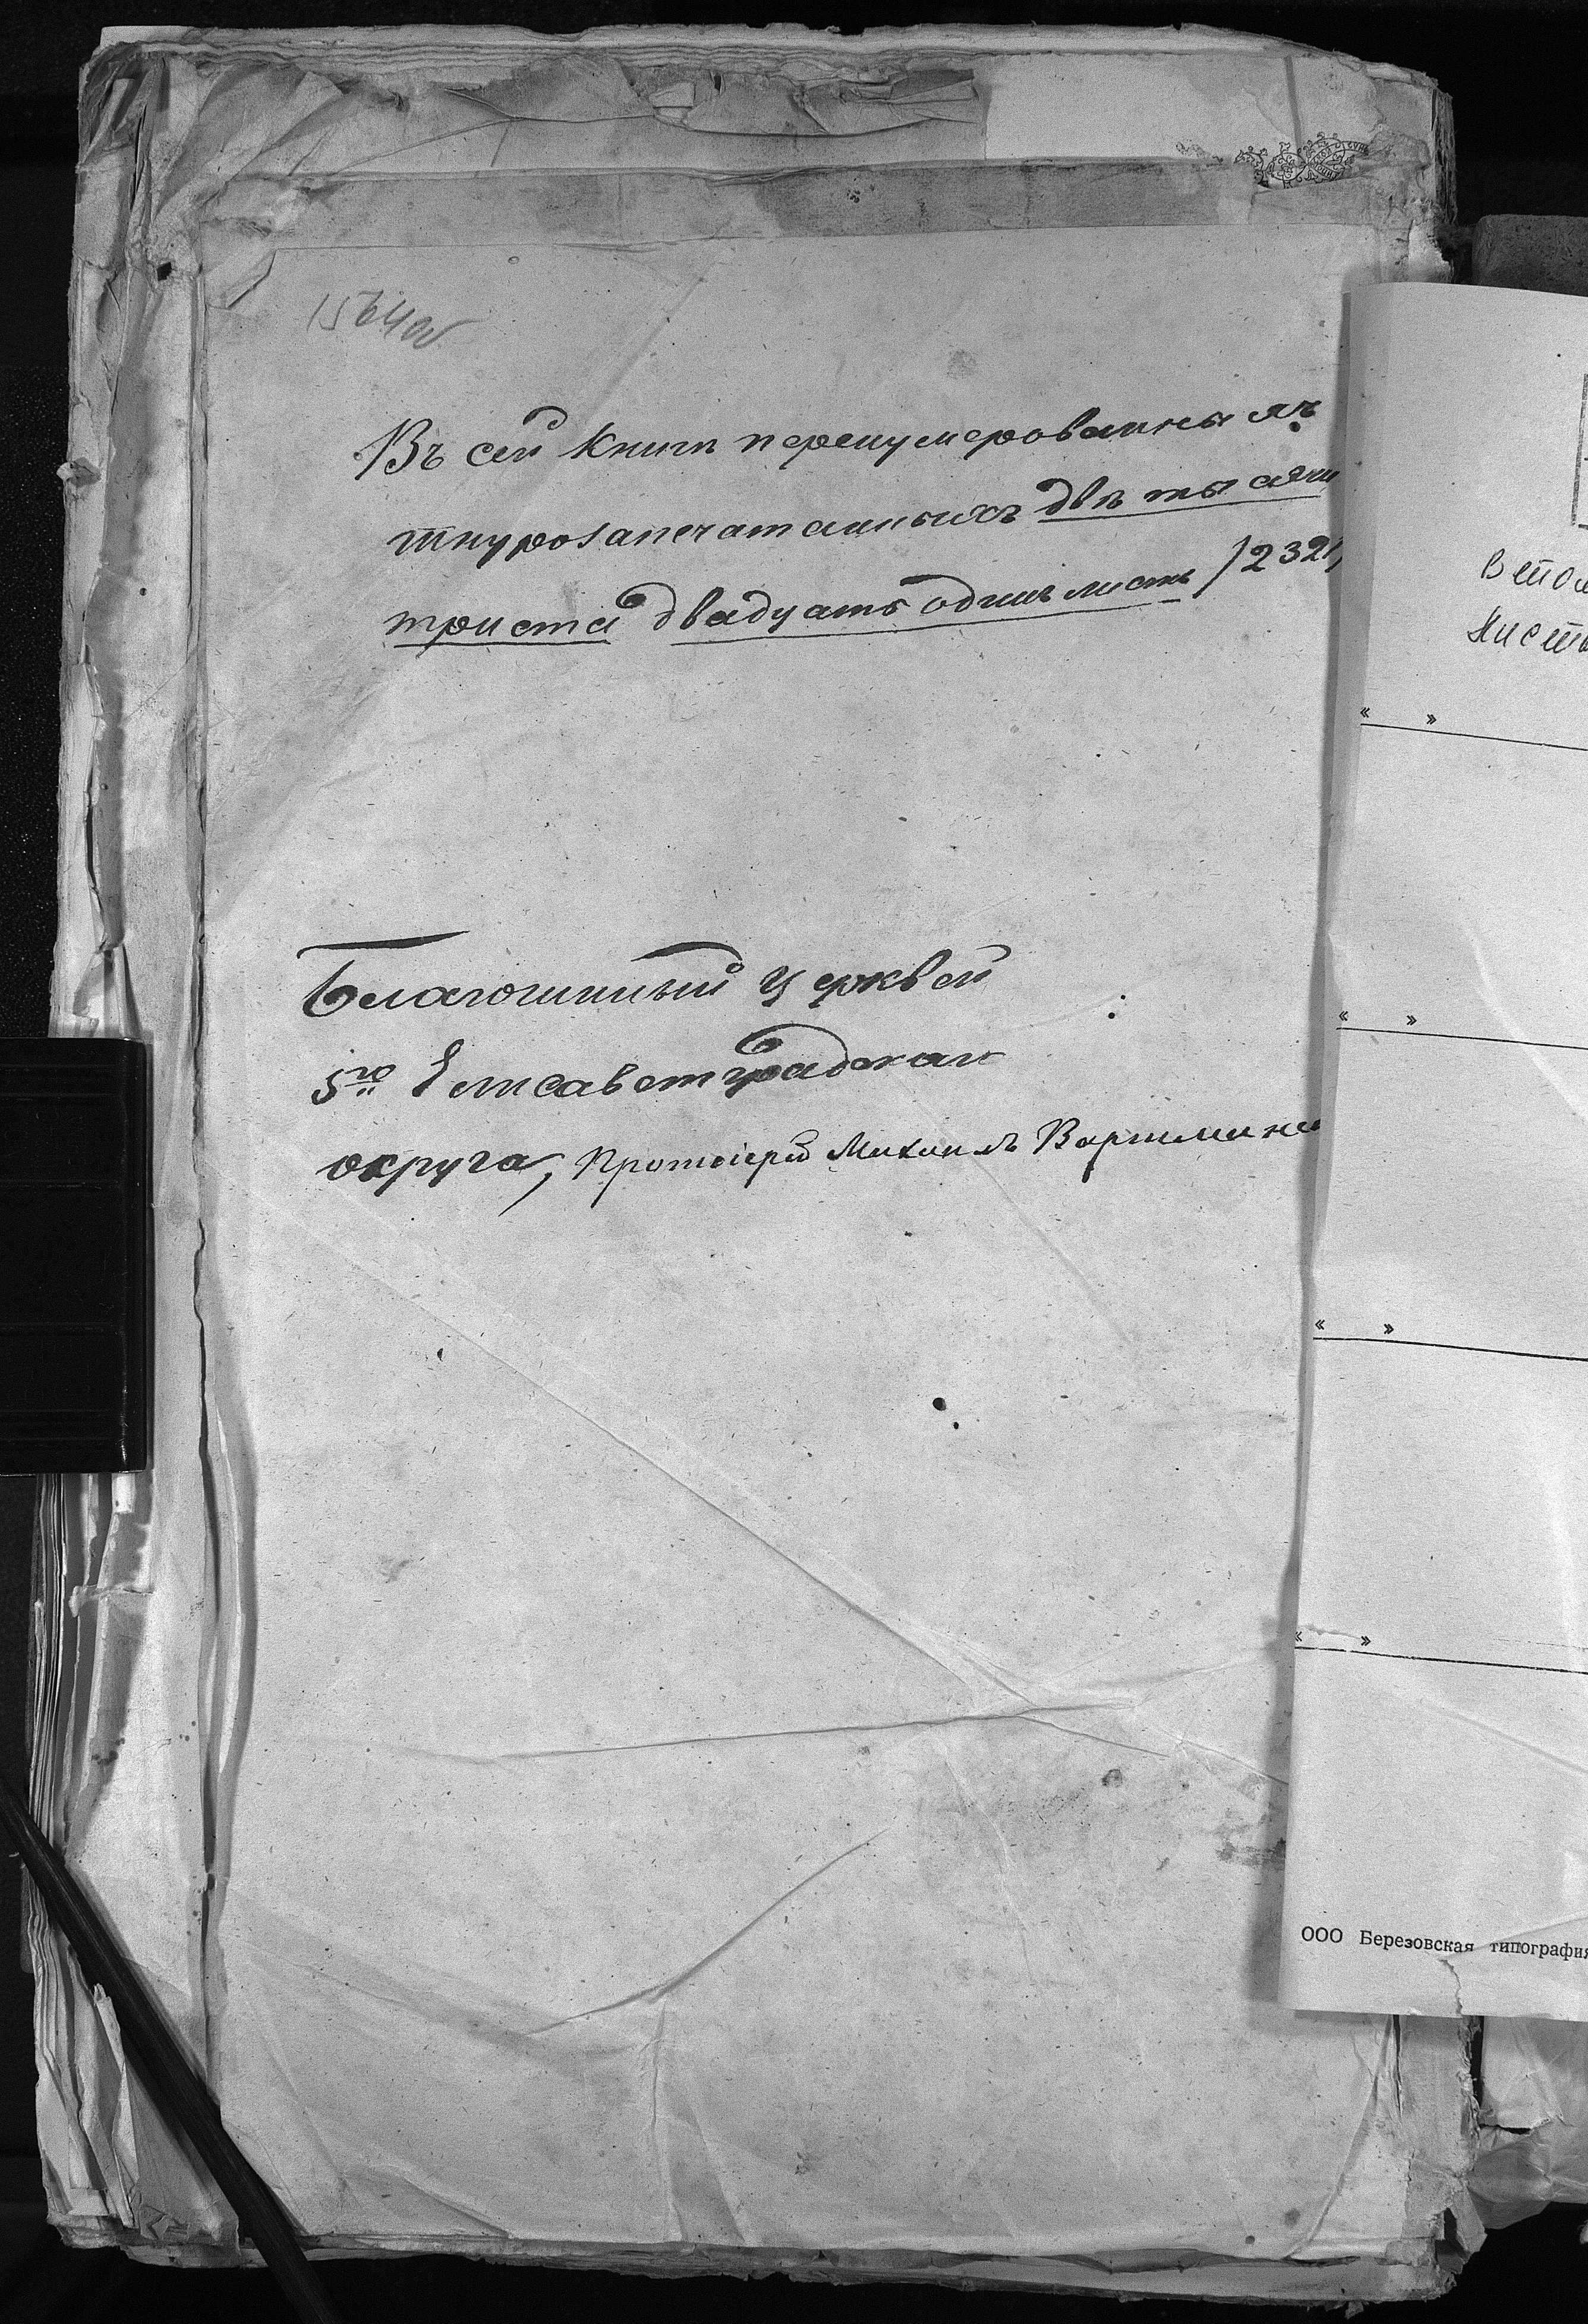 1564 об
Въ сей книгѣ перенумерованныхъ
шнурозапечатанныхъ двѣ тысячи
триста двадцать одинъ листъ /2321/
Благочинный церквей
5го Елисаветградскаго
округа, Протоіерей Михаилъ
«   »
«   »
«   »
«   »
ООО Березовская типография